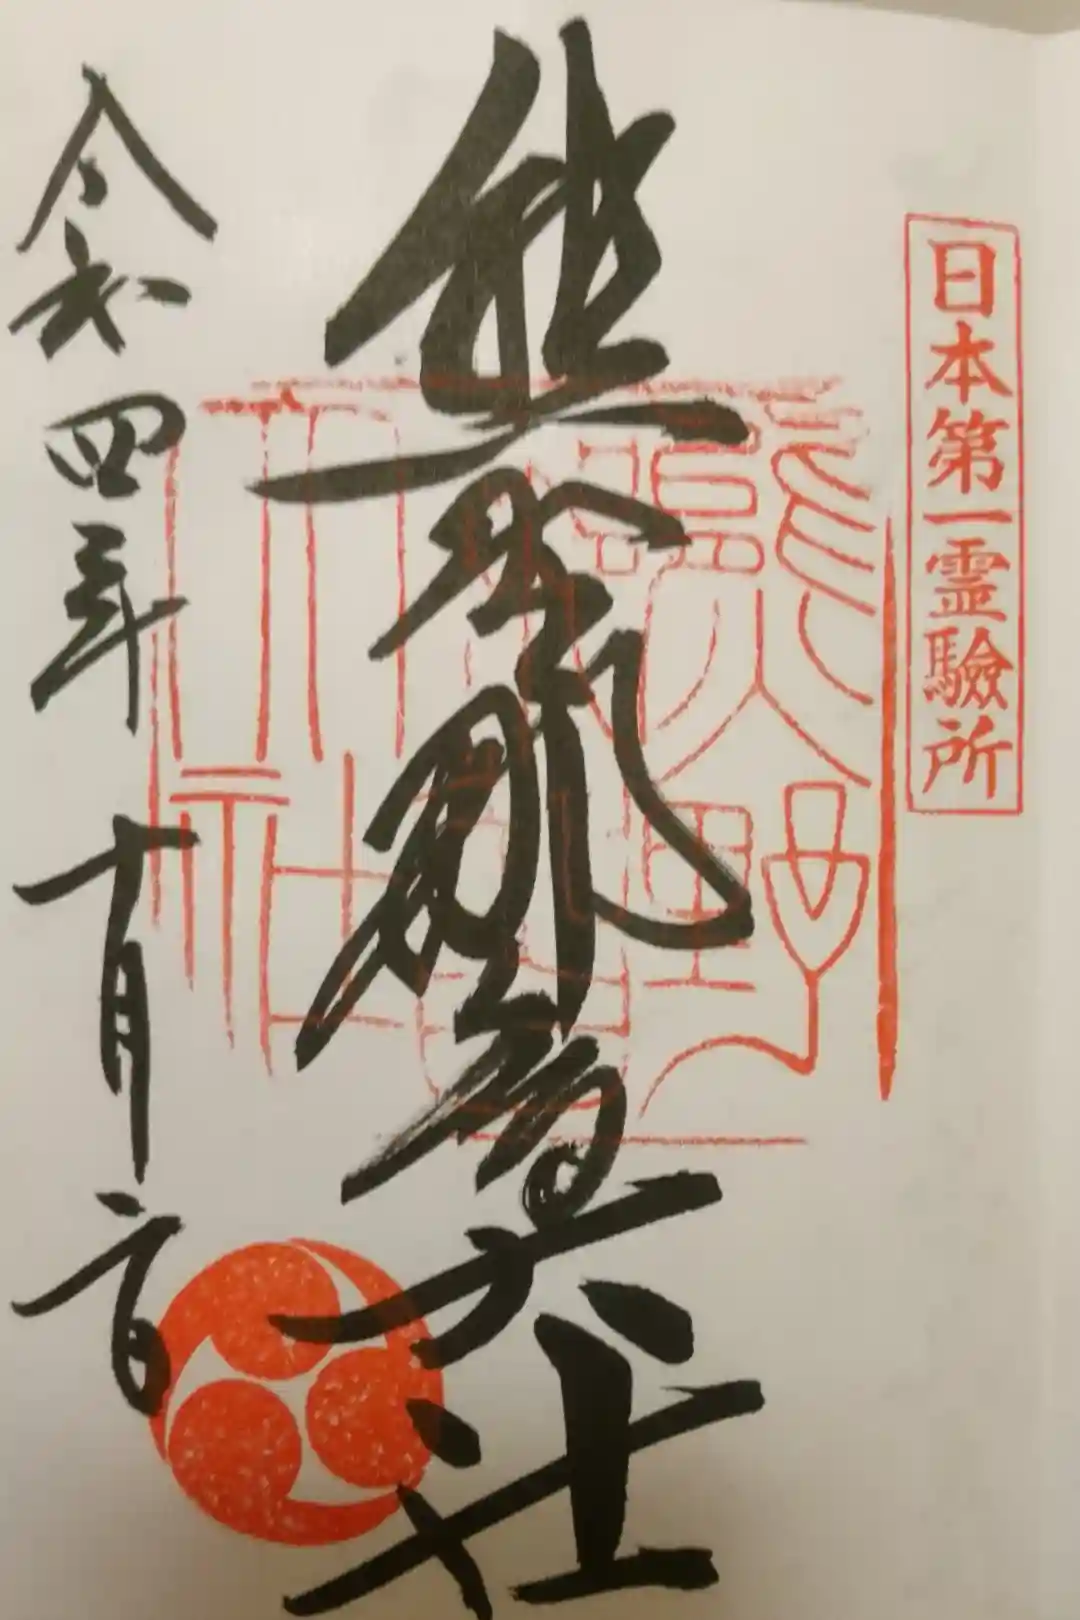 日本第一霊驗所
熊野那智大社
熊野那智大社
令和四年十月二日